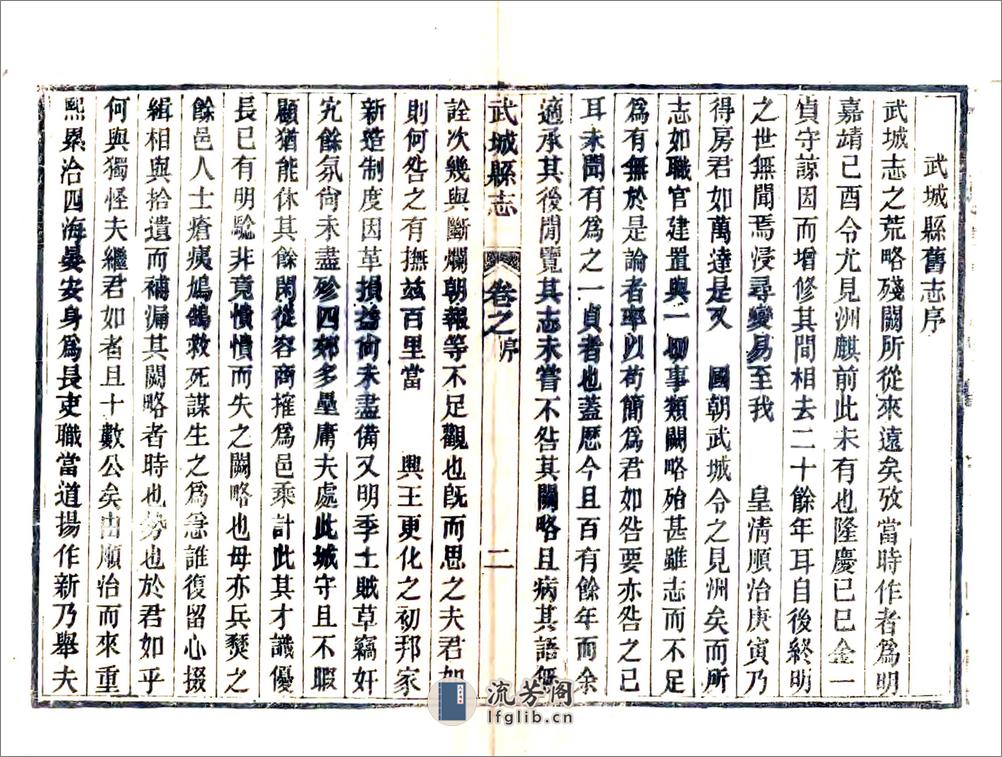 武城縣舊志序
武城志之荒略殘闕所從來遠矣攷當時作者爲明
嘉靖己酉令尤見洲麒前此未有也隆慶己巳金一
貞守諒因而增修其間相去二十餘年耳自後終明
之世無聞焉浸尋變易至我 皇清順治庚寅乃
得房君如萬達是又 國朝武城令之見洲矣而所
志如職官建置與一切事類闕略殆甚雖志而不足
爲有無於是論者率以苟簡爲君如咎要亦咎之已
耳未聞有爲之一貞者也蓋歷今且百有餘年而余
適承其後閒覽其志未嘗不咎其闕略且病其語無
武城縣志 卷之序 二
詮次幾與斷爛朝報等不足觀也旣而思之夫君如
則何咎之有撫玆百里當 興王更化之初邦家
新造制度因革損益尙未盡備又明季土賊草竊奸
宄餘氛尙未盡殄四郊多壘庸夫處此城守且不暇
顧猶能休其餘閑從容商搉爲邑乘計此其才識優
長已有明驗非竟憒憒而失之闕略也毋亦兵燹之
餘邑人士瘡痍鳩鵠救死謀生之爲急誰復留心掇
緝相與拾遺而補漏其闕略者時也勢也於君如乎
何與獨怪夫繼君如者且十數公矣由順治而來重
熙累洽四海晏安身爲長吏職當道揚作新乃舉夫
流芳阁
lfglib.cn